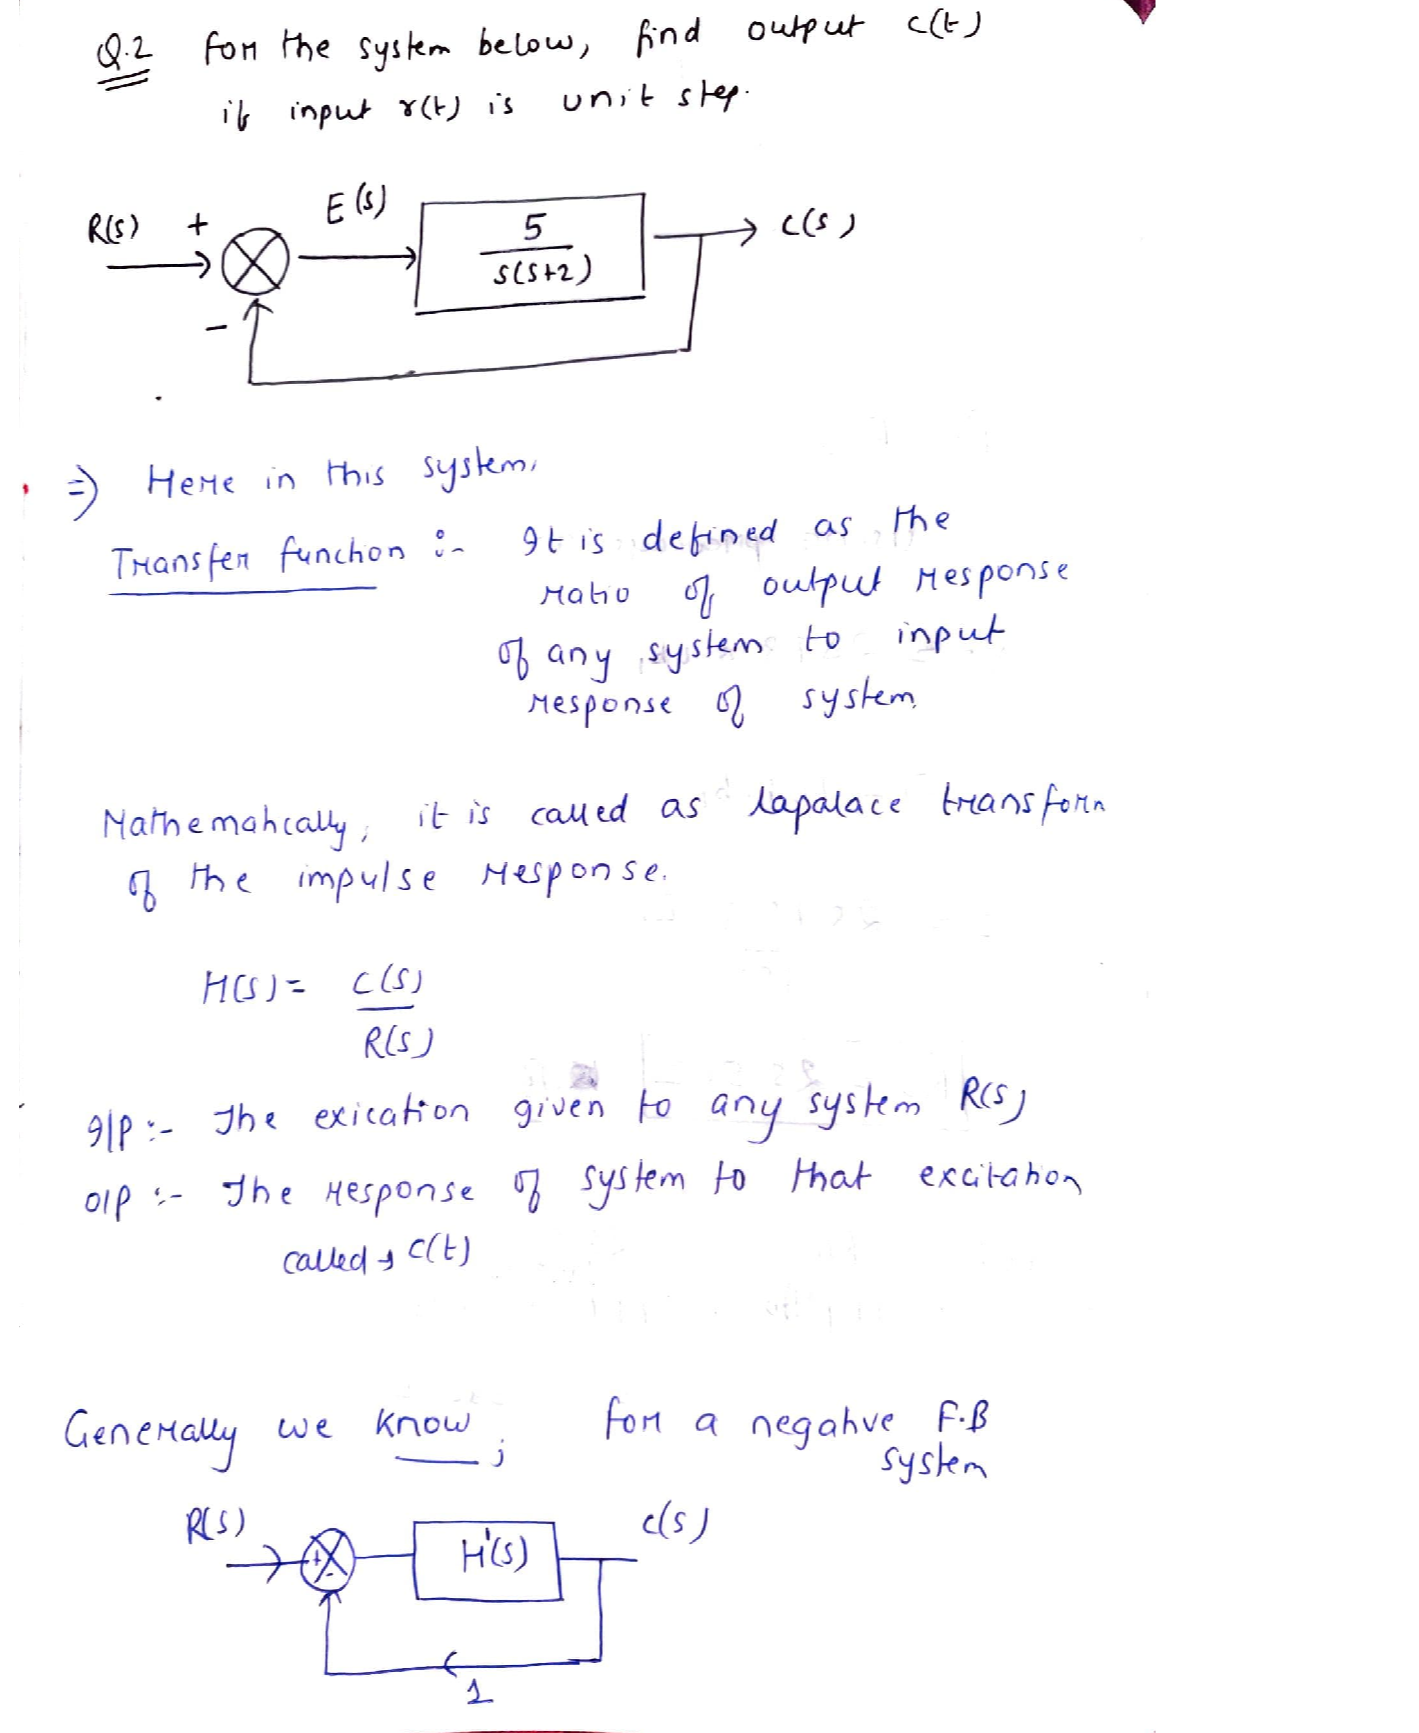 Q.2 for the system below, find output c(t)
if input r(t) is unit step.
R(s) + E(s) 5 / s(s+2) c(s)
-
⇒ Here in this system,
Transfer function :- It is defined as the
ratio of output response
of any system to input
response of system.
Mathematically, it is called as lapalace transform
of the impulse response.
H(s) = c(s)
R(s)
I/p :- The exication given to any system R(s)
o/p :- The response of system to that excitation
called → c(t)
Generally we know, for a negative F.B
system
R(s) c(s)
+ - H'(s)
1